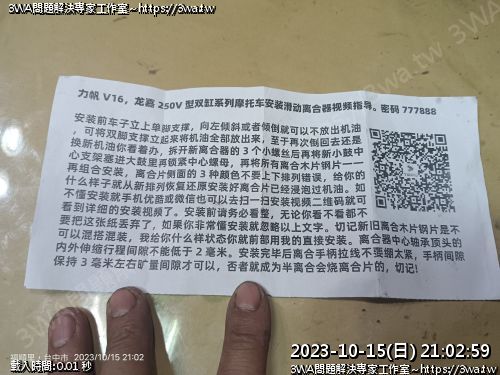 3WA問題解決專家工作室~https://3wa.tw
3WA問題解決專家工作室~https://3wa.tw
力帆 V16，龙嘉 250V 型双缸系列摩托车安装滑动离合器视频指导。密码 777888
安装前车子立上单脚支撑，向左倾斜或者倾倒就可以不放出机油
，可将双脚支撑立起来将机油全部放出来，至于再次倒回去还是
换新机油你看着办，拆开新离合器的 3 个小螺丝后再将新小鼓中
心支架塞进大鼓里再锁紧中心螺母，再将所有离合木片钢片一一
再组合安装，离合片侧面的 3 种颜色不要上下排列错误，给你的
什么样子就从新排列恢复还原安装好离合片已经浸泡过机油。如
不懂安装就手机优酷或微信也可以去扫一扫安装视频二维码就可
看到详细的安装视频了。安装前请务必看
，无论你看不看都不
要把这张纸丢弃了，如果你非常懂安装就忽略以上文字。切记新旧离合木片钢片是不
可以混搭混装，我给你什么样状态你就前部用我的直接安装。离合器中心轴承顶头的
内外伸缩行程间隙不能低于 2 毫米。安装完毕后离合手柄拉线不要绷太紧，手柄间隙
保持 3 毫米左右旷量间隙才可以，否则就成为半离合会烧离合片的，切记!
福順里，台中市 2023/10/15 21:02
載入時間:0.01 秒
2023-10-15(日) 21:02:59
3WA問題解決專家工作室~https://3wa.tw